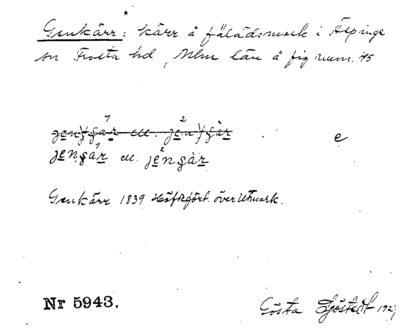 Genkärr: kärr å fäladsmark i Äspinge
sn Frosta hd, Mlm län å fig num. 45
jen)gar ell. jen)gàr
e
jengar ell. jengàr
Genkärr 1839 Häfdfört. över Utmark.
Nr 5943.
Gösta Sjöstedt